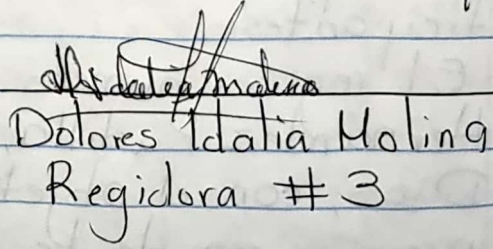 Dolores Idalia Molina
Regidora # 3